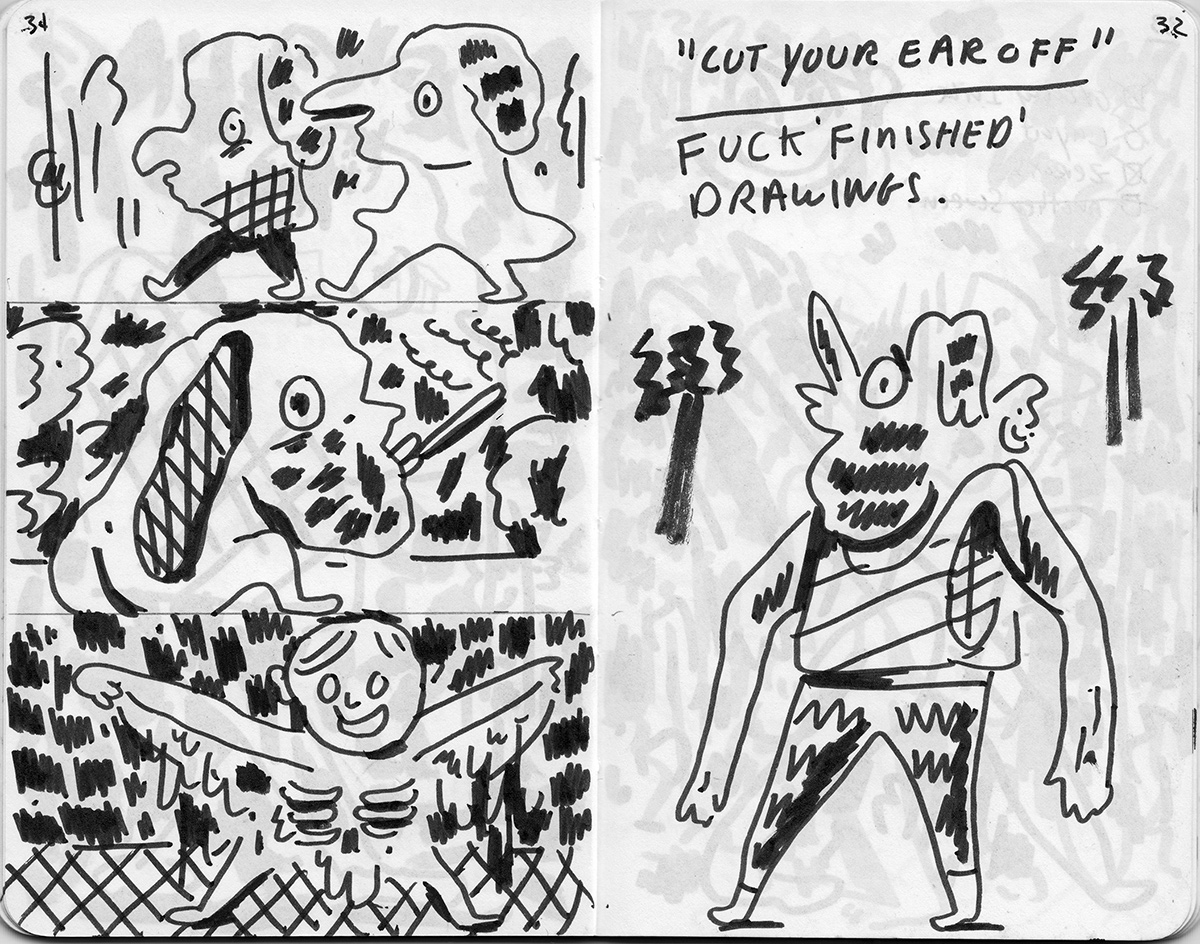 34
32
"CUT YOUR EAR OFF"
FUCK 'FINISHED'
DRAWINGS.